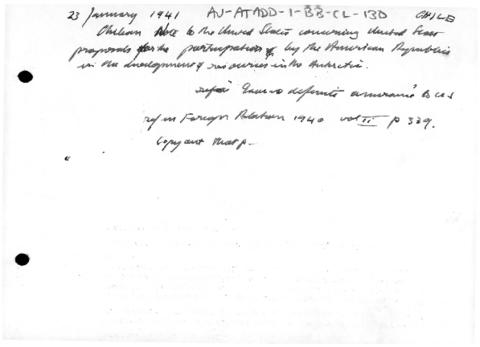 23 January 1941 AU-ATADD-1-BB-CL-130 CHILE
Chilean Note to the United States concerning United States
proposals for the participation of by the American Republics
in the development of resources in the Antarctic.
definite
ref in Foreign Relations 1940 vol II p 339.
Copy out that p.